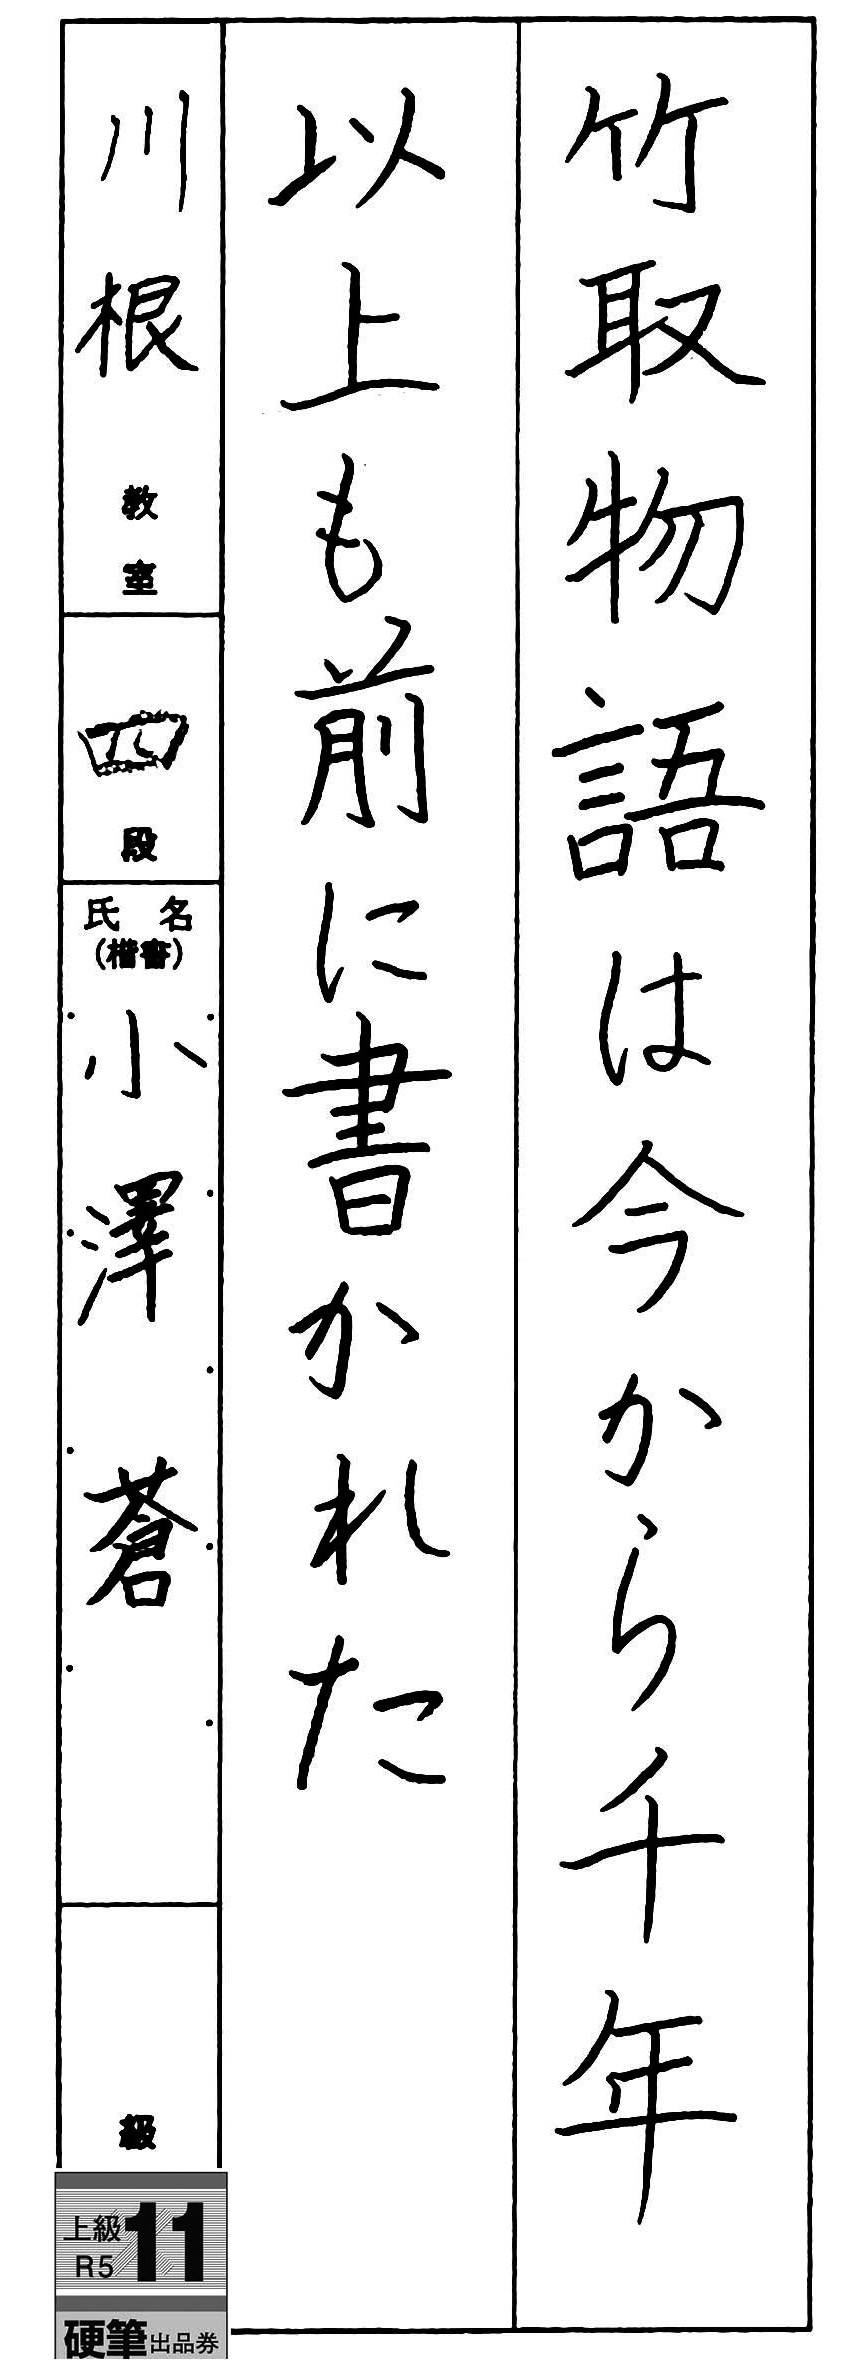 竹取物語は今から千年
以上も前に書かれた
川根教室
四段
氏名
(楷書)
小澤蒼
級
上級
R5
11
硬筆出品券